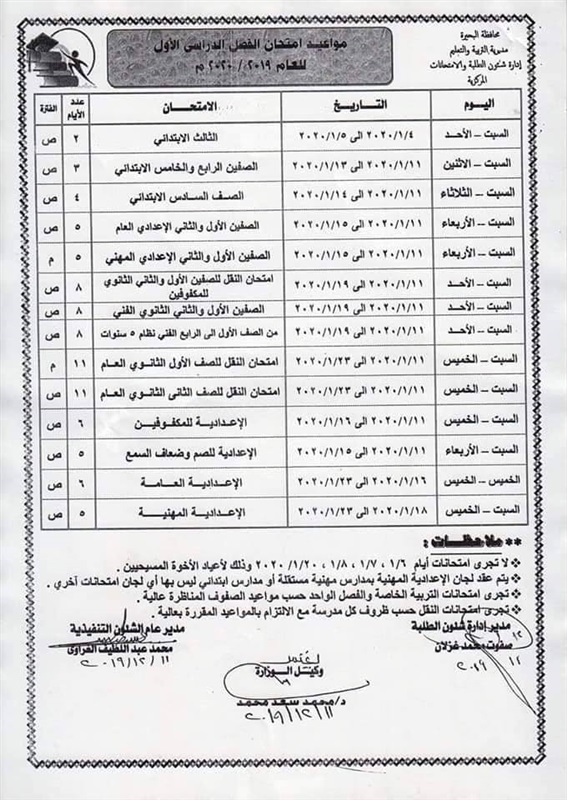 محافظة البحيرة
مديرية التربية والتعليم
إدارة شئون الطلبة والامتحانات
المركزية
مواعيد امتحان الفصل الدراسى الأول
للعام ٢٠١٩ / ٢٠٢٠ م
اليوم التاريخ الامتحان عدد الأيام الفترة
السبت – الأحد ٢٠٢٠/١/٤ الى ٢٠٢٠/١/٥ الثالث الابتدائي ٢ ص
السبت – الاثنين ٢٠٢٠/١/١١ الى ٢٠٢٠/١/١٣ الصفين الرابع والخامس الابتدائي ٣ ص
السبت – الثلاثاء ٢٠٢٠/١/١١ الى ٢٠٢٠/١/١٤ الصف السادس الابتدائي ٤ ص
السبت – الأربعاء ٢٠٢٠/١/١١ الى ٢٠٢٠/١/١٥ الصفين الأول والثاني الإعدادي العام ٥ ص
السبت – الأربعاء ٢٠٢٠/١/١١ الى ٢٠٢٠/١/١٥ الصفين الأول والثاني الإعدادي المهني ٥ م
السبت – الأحد ٢٠٢٠/١/١١ الى ٢٠٢٠/١/١٩ امتحان النقل للصفين الأول والثاني الثانوي للمكفوفين ٨ ص
السبت – الأحد ٢٠٢٠/١/١١ الى ٢٠٢٠/١/١٩ الصفين الأول والثاني الثانوي الفني ٨ ص
السبت – الأحد ٢٠٢٠/١/١١ الى ٢٠٢٠/١/١٩ من الصف الأول الى الرابع الفني نظام ٥ سنوات ٨ ص
السبت – الخميس ٢٠٢٠/١/١١ الى ٢٠٢٠/١/٢٣ امتحان النقل للصف الأول الثانوي العام ١١ م
السبت – الخميس ٢٠٢٠/١/١١ الى ٢٠٢٠/١/٢٣ امتحان النقل للصف الثانى الثانوي العام ١١ ص
السبت – الخميس ٢٠٢٠/١/١١ الى ٢٠٢٠/١/١٦ الإعدادية للمكفوفين ٦ ص
السبت – الأربعاء ٢٠٢٠/١/١١ الى ٢٠٢٠/١/١٥ الإعدادية للصم وضعاف السمع ٥ ص
الخميس – الخميس ٢٠٢٠/١/١٦ الى ٢٠٢٠/١/٢٣ الإعدادية العامة ٦ ص
السبت – الخميس ٢٠٢٠/١/١٨ الى ٢٠٢٠/١/٢٣ الإعدادية المهنية ٥ ص
** ملاحظات :
❖ لا تجرى امتحانات أيام ١/٦ ، ١/٧ ، ١/٨ ، ٢٠٢٠/١/٢٠ وذلك لأعياد الأخوة المسيحيين .
❖ يتم عقد لجان الإعدادية المهنية بمدارس مهنية مستقلة أو مدارس ابتدائي ليس بها أي لجان امتحانات آخري .
❖ تجرى امتحانات التربية الخاصة والفصل الواحد حسب مواعيد الصفوف المناظرة عالية .
❖ تجرى امتحانات النقل حسب ظروف كل مدرسة مع الالتزام بالمواعيد المقررة بعالية .
مدير إدارة شئون الطلبة
صفوت محمد غزلان
مدير عام الشئون التنفيذية
محمد عبد اللطيف الغراوى
٢٠١٩/١٢/١١
يُعتمد
وكيل الوزارة
د/ محمد سعد محمد
٢٠١٩/١٢/١١